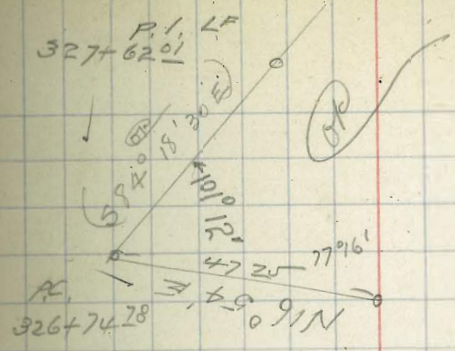 P.I. LF
327+62 01
(S 84° 18' 30 E)
OK
OK
101° 12'
47 25
77°16'
N 16° 54' E
P.C.
326+74 78